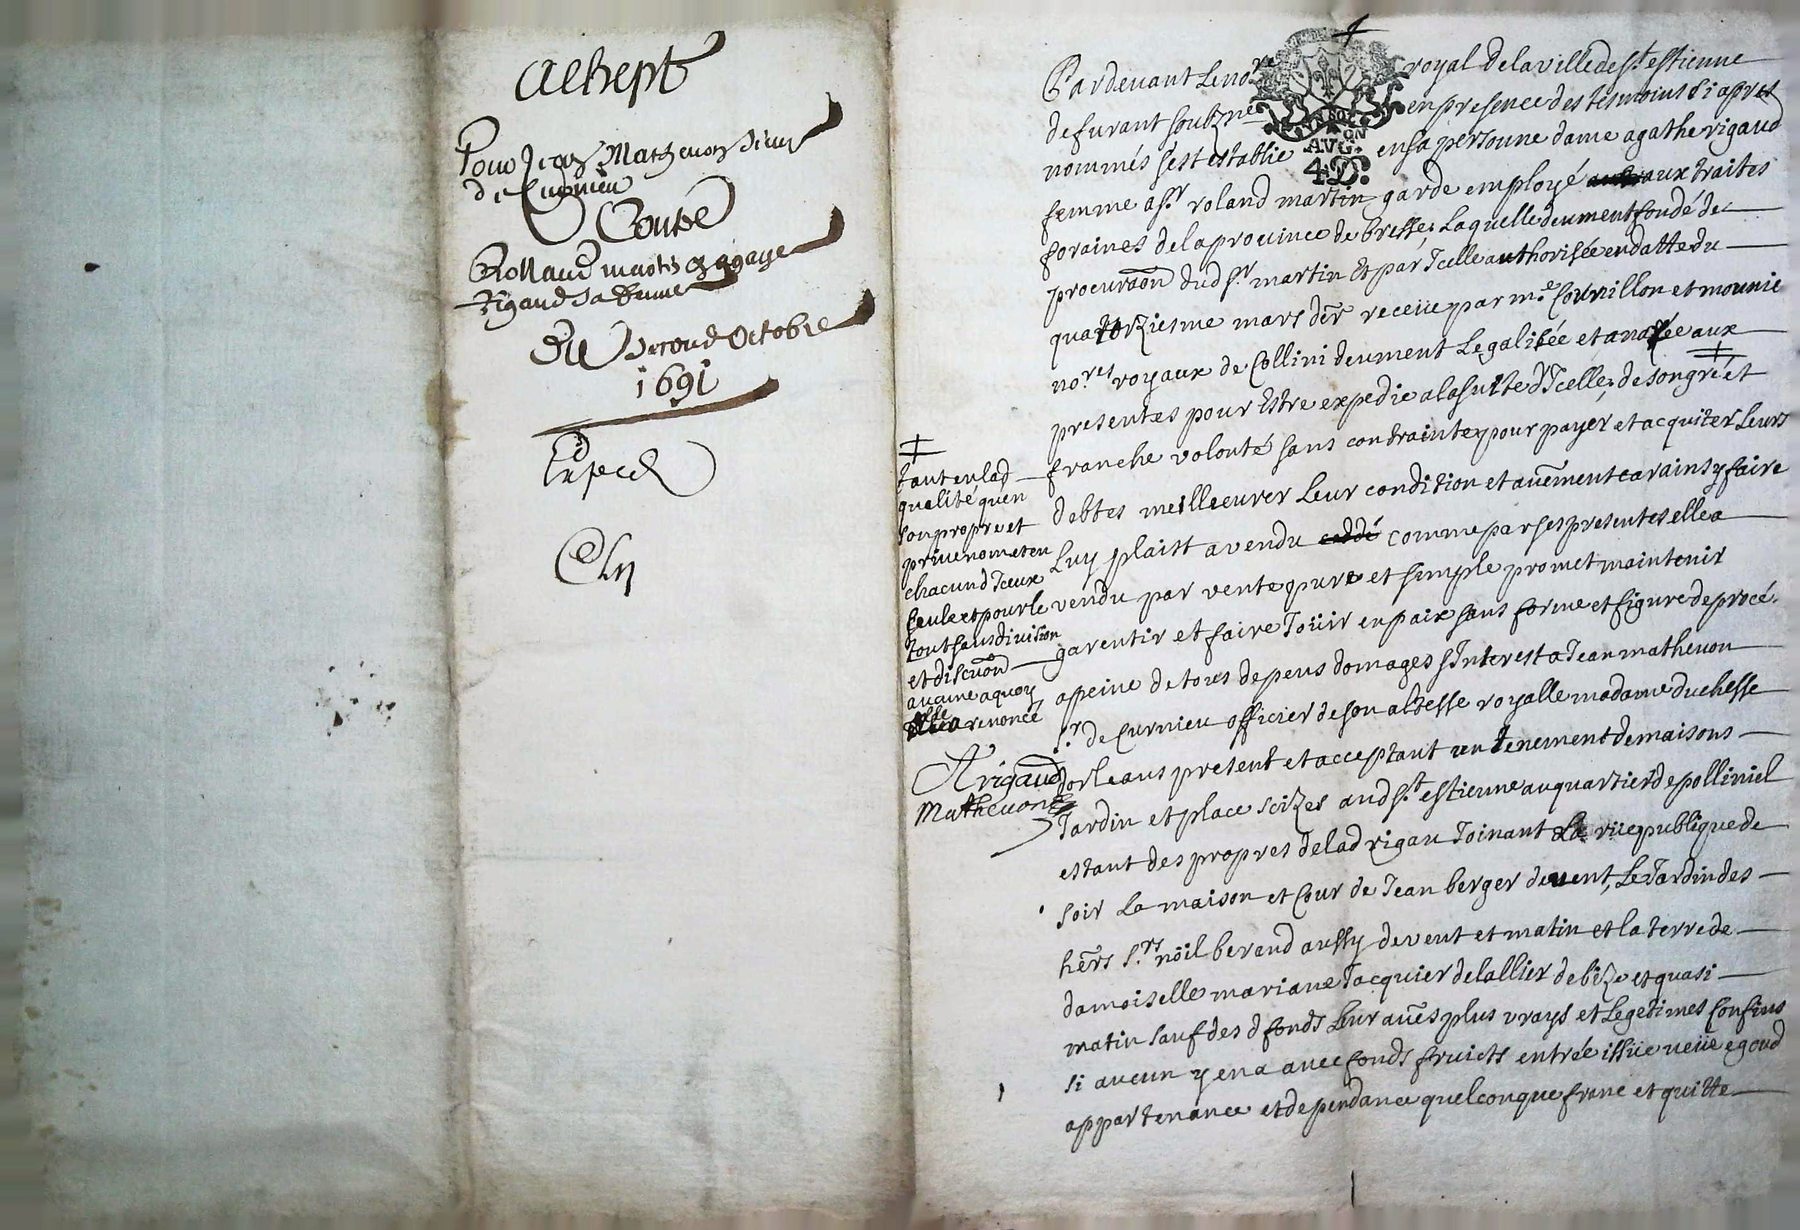 achept
Pour Jean Mathevon Sieur
de Curnieu
Contre
Rolland martin & agathe
Rigaud sa femme
Du Second Octobre
1691
Exped
royal de la ville de st estienne
Pardevant le nore
de furant soubzne en presence des tesmoins ci apres
nommés s'est establie en sa personne dame agathe rigaud
AVG.
4D.
femme a sr roland martin garde employé aux traites
foraines de la province de bresse, Laquelle deument fondé de
procuraõn dud sr martin Et par Icelle authorisée en datte du
quatorziesme mars der receue par me Cornillon et mounie
nores royaux de Collini deument Legalisée et anexée aux
presentes pour Estre expedie a la suite d'Icelle, de son gré et
franche volonté sans contrainte, pour payer et acquiter Leurs
debtes meilleurer Leur condition et aũement car ainsy faire
Luy plaist a vendu cedde comme par ses presentes elle a
vendu par vente pure et simple promet maintenir
garentir et faire Joüir en paix sans forme et figure de procé.
a peine de tous depens domages Interest a Jean mathevon
sr de Curnieu officier de son altesse royalle madame duchesse
dorleans present et acceptant un tenement de maisons
Jardin et place scizes aud st estienne au quartier de polliniel
estant des propres de lad rigau Joinant La rüe publique de
soir La maison et Cour de Jean berger de vent, Le Jardin des
hers srs nöil berand aussy de vent et matin et la terre de
damoiselle mariane Jacquier de lallier de bize et quasi
matin sauf des d fonds Leur aũes plus vrays et Legetimes Confins
si aucun y en a avec fonds fruicts entrée issüe veüe egoud
appartenance et dependance quelconque franc et quitte
tant en lad
qualité qu'en
son propre et
privé nom et en
chacund Iceux
seule et pour le
tout sans division
et discuõn
aucune a quoy
elle a renoncé
A rigaud
Mathevon